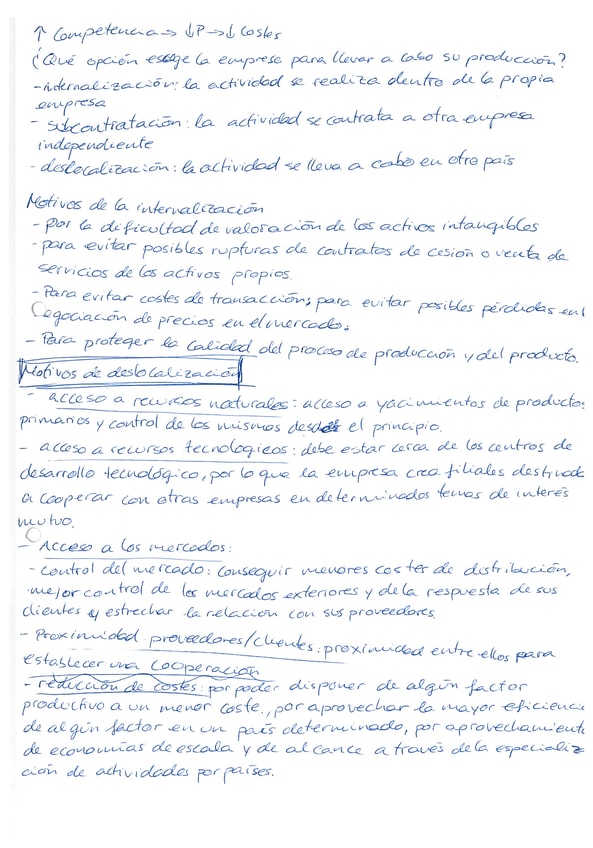 ↑ Competencia => ↓P -> ↓ Costes
¿Qué opción escoge la empresa para llevar a cabo su producción?
-internalización: la actividad se realiza dentro de la propia
empresa
- subcontratación: la actividad se contrata a otra empresa
independiente
- deslocalización: la actividad se lleva a cabo en otro país
Motivos de la internalización
- por la dificultad de valoración de los activos intangibles
- para evitar posibles rupturas de contratos de cesión o venta de
servicios de los activos propios.
- Para evitar costes de transacción; para evitar posibles pérdidas en l
egociación de precios en el mercado.
- Para proteger la calidad del proceso de producción y del producto.
Motivos de deslocalización
- acceso a recursos naturales: acceso a yacimientos de productos
primarios y control de los mismos desde el principio.
- acceso a recursos tecnologicos: debe estar cerca de los centros de
desarrollo tecnológico, por lo que la empresa crea filiales destinada
a cooperar con otras empresas en determinados temas de interés
mutuo.
- Acceso a los mercados:
- control del mercado: conseguir menores costes de distribución,
mejor control de los mercados exteriores y de la respuesta de sus
clientes y estrechar la relación con sus proveedores.
- Proximidad proveedores/clientes: proximidad entre ellos para
establecer una cooperación
- reducción de costes: por poder disponer de algún factor
productivo a un menor coste., por aprovechar la mayor eficiencia
de algún factor en un país determinado, por aprovechamiento
de economías de escala y de alcance a través de la especializ
ción de actividades por países.